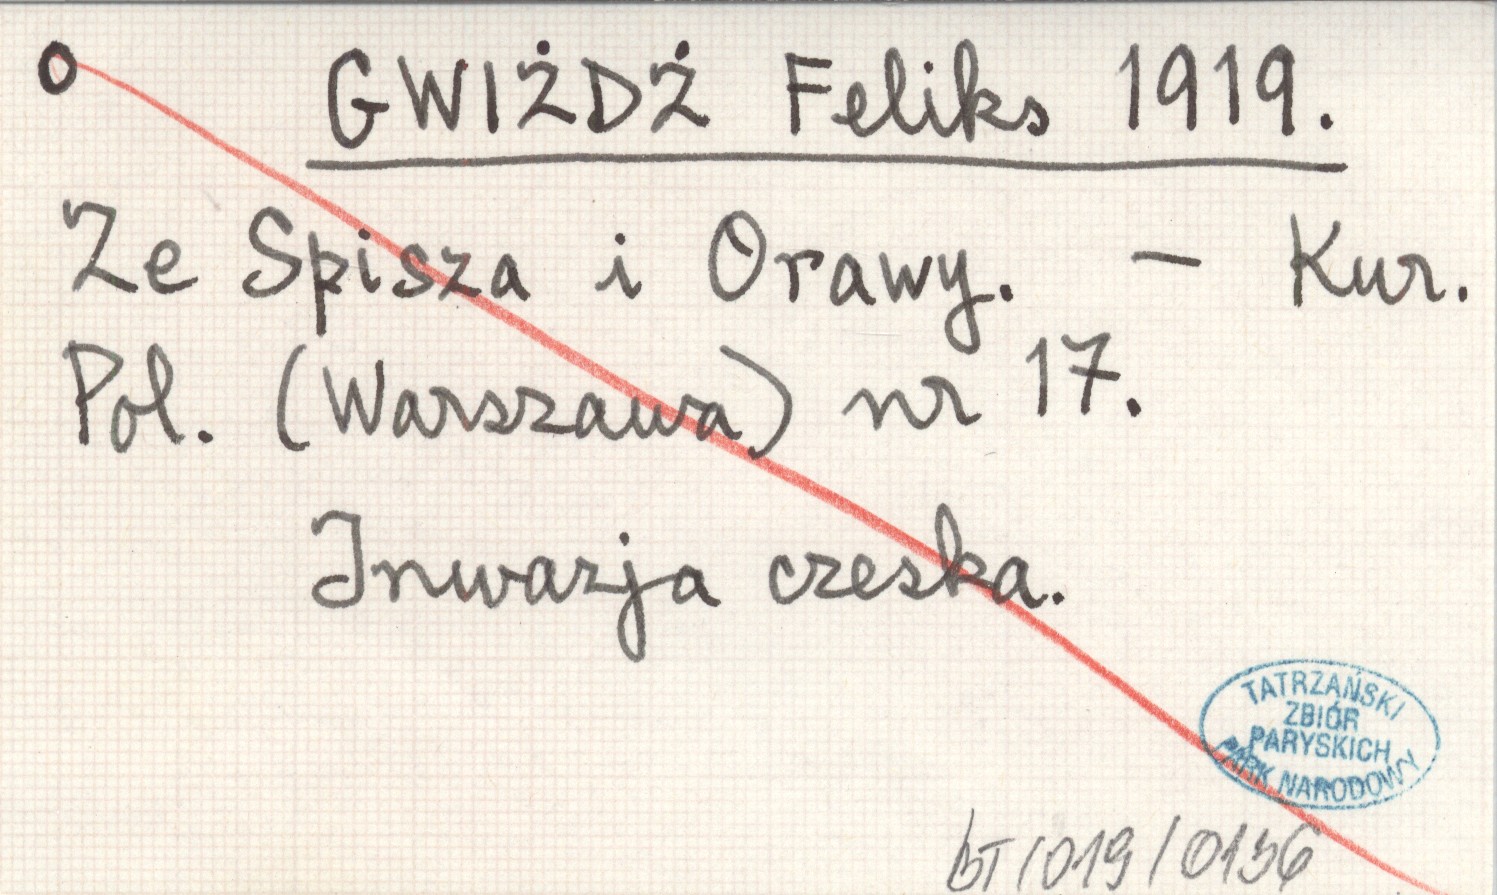 O
GWIŻDŻ Feliks 1919.
Ze Spisza i Orawy. – Kur.
Pol. (Warszawa) nr 17.
Inwazja czeska.
TATRZAŃSKI
ZBIÓR
PARYSKICH
PARK NARODOWY
bT/019/0156